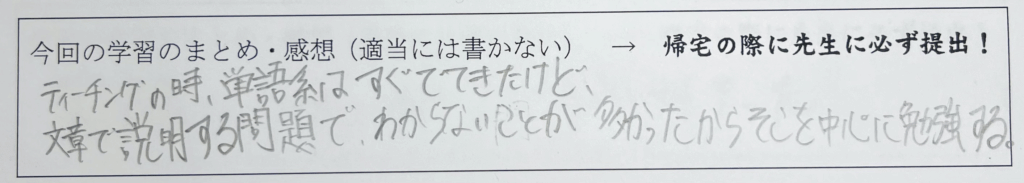 今回の学習のまとめ・感想（適当には書かない）　→　帰宅の際に先生に必ず提出！
ティーチングの時、単語系はすぐでてきたけど、
文章で説明する問題で、わからないことが多かったからそこを中心に勉強する。